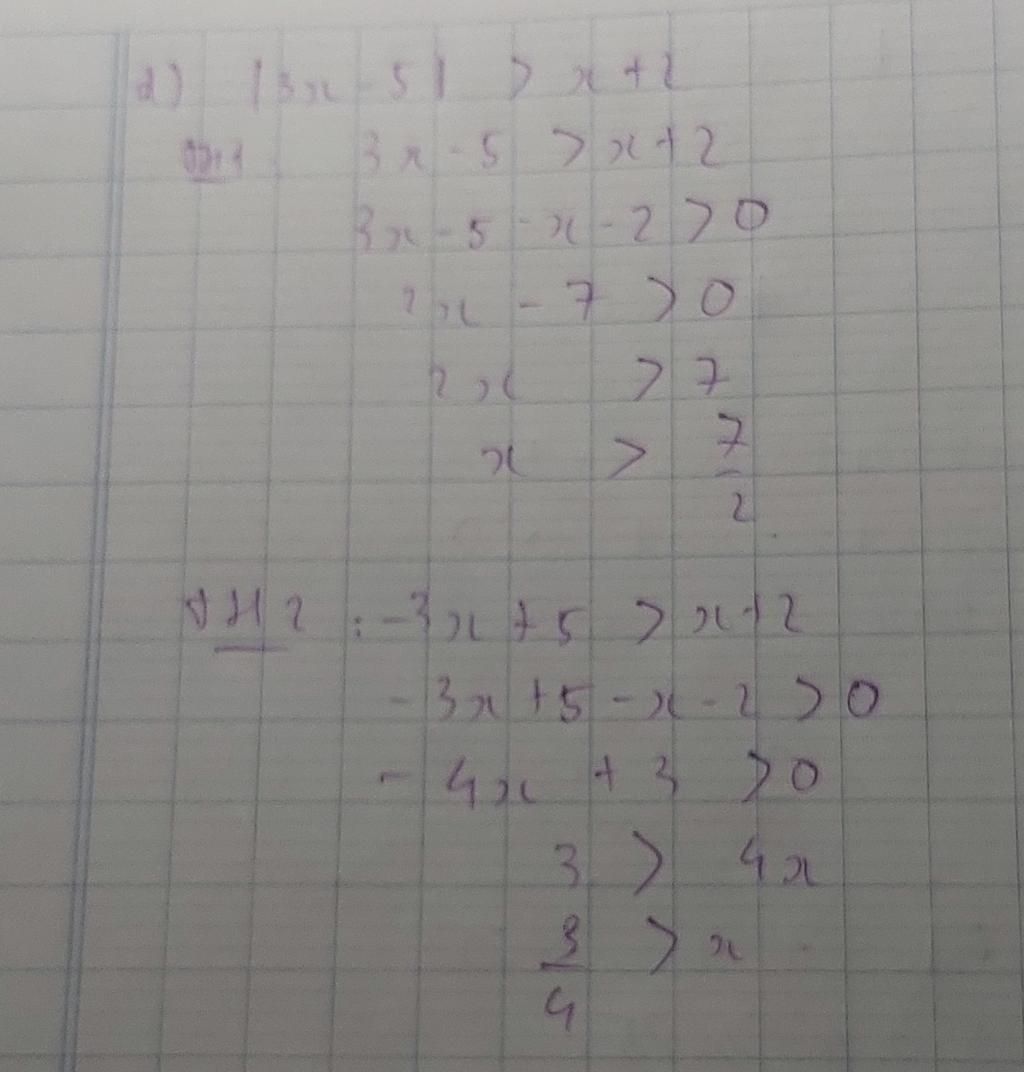 d) |3x - 5| > x + 2
TH1: 3x - 5 > x + 2
3x - 5 - x - 2 > 0
2x - 7 > 0
2x > 7
x > 7/2
TH2: -3x + 5 > x + 2
-3x + 5 - x - 2 > 0
-4x + 3 > 0
3 > 4x
3/4 > x